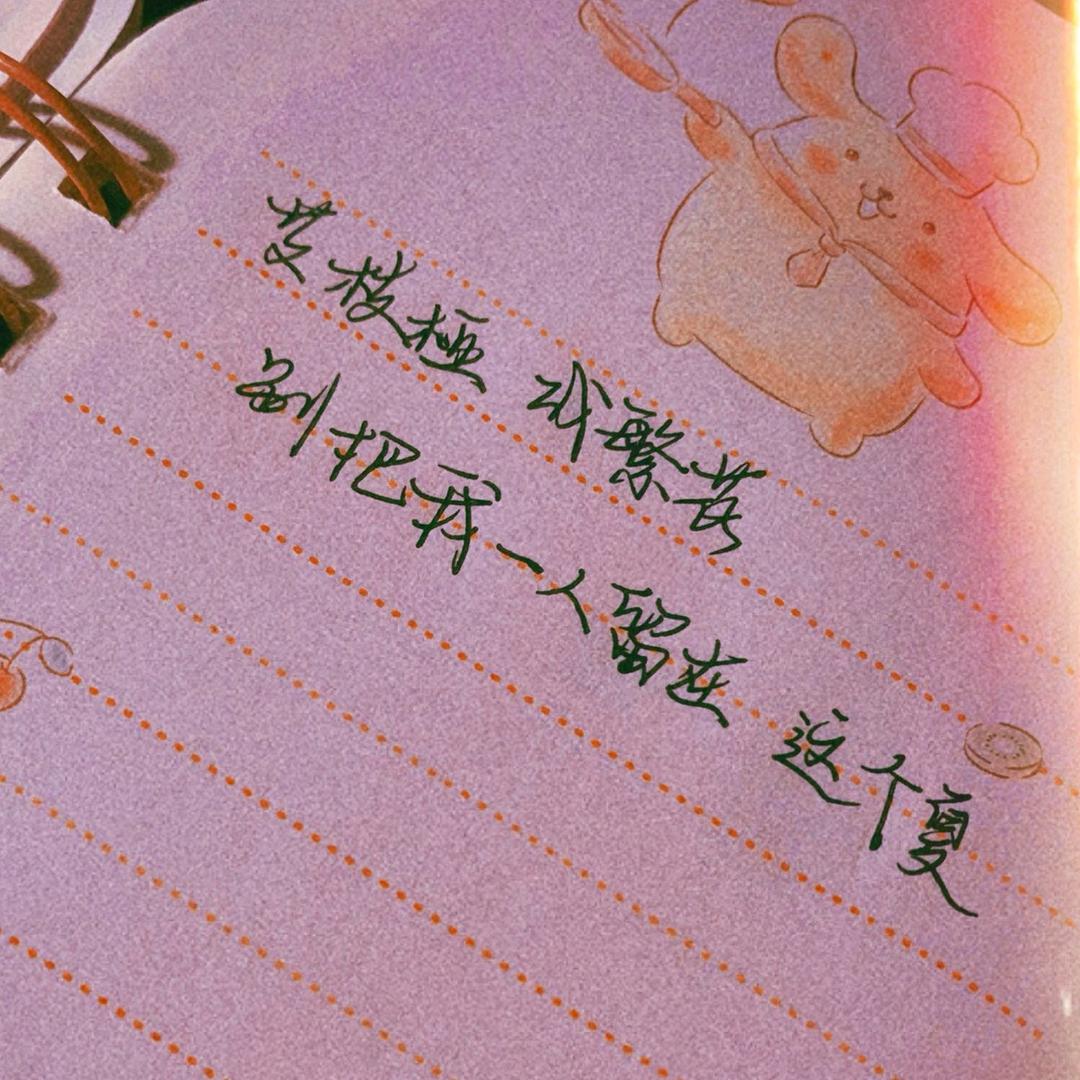 枝桠 繁花
别把我一人留在 这个夏